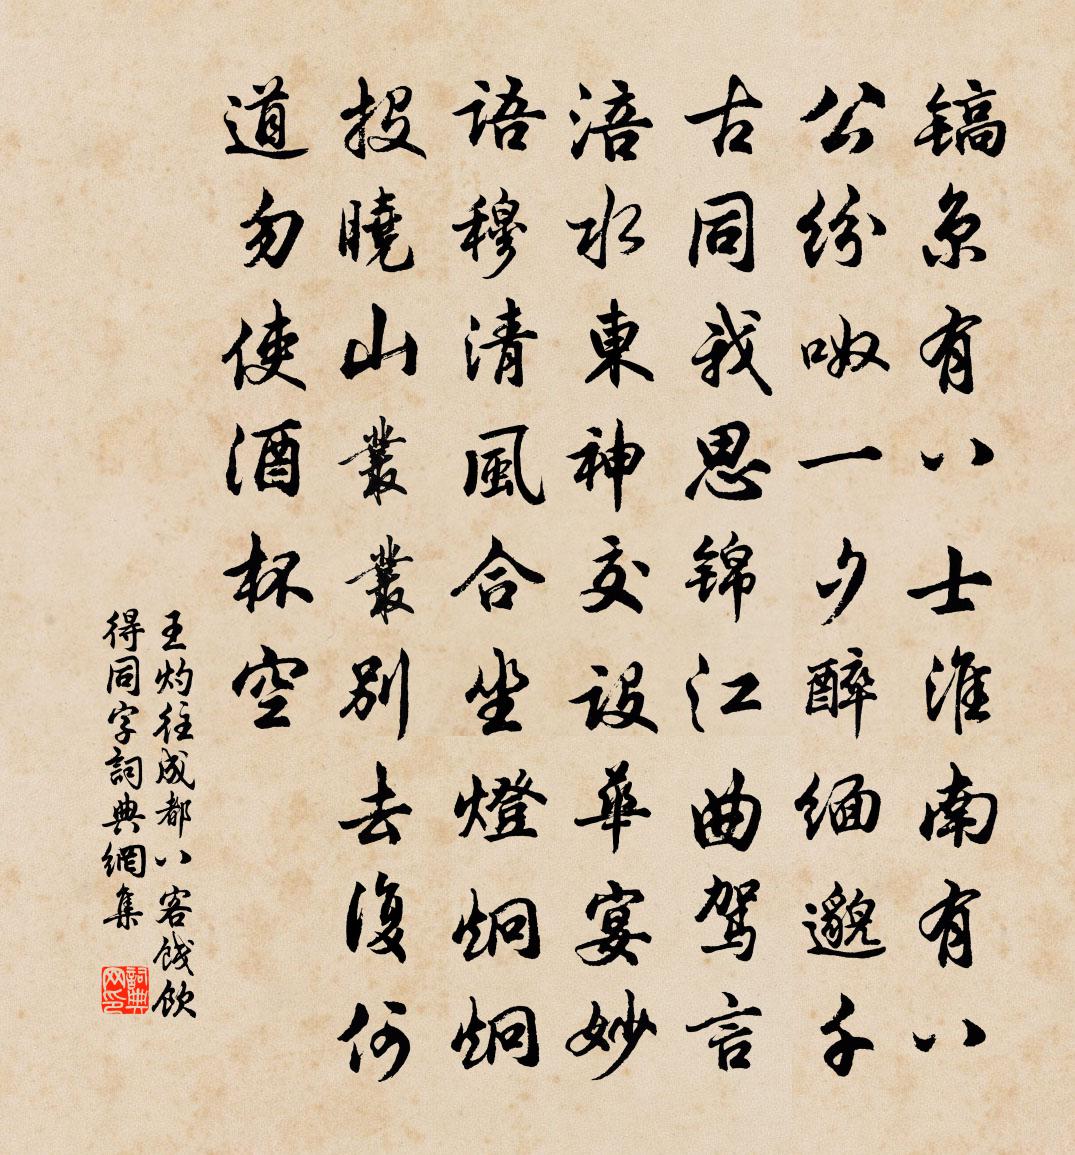 镐京有八士淮南有八
公纷呶一夕醉缅邈千
古同我思锦江曲驾言
涪水東神交设華宴妙
语穆清風合坐燈炯炯
投曉山叢叢别去復何
道勿使酒杯空
王灼往成都八客餞飲
得同字詞典網集
詞典网印